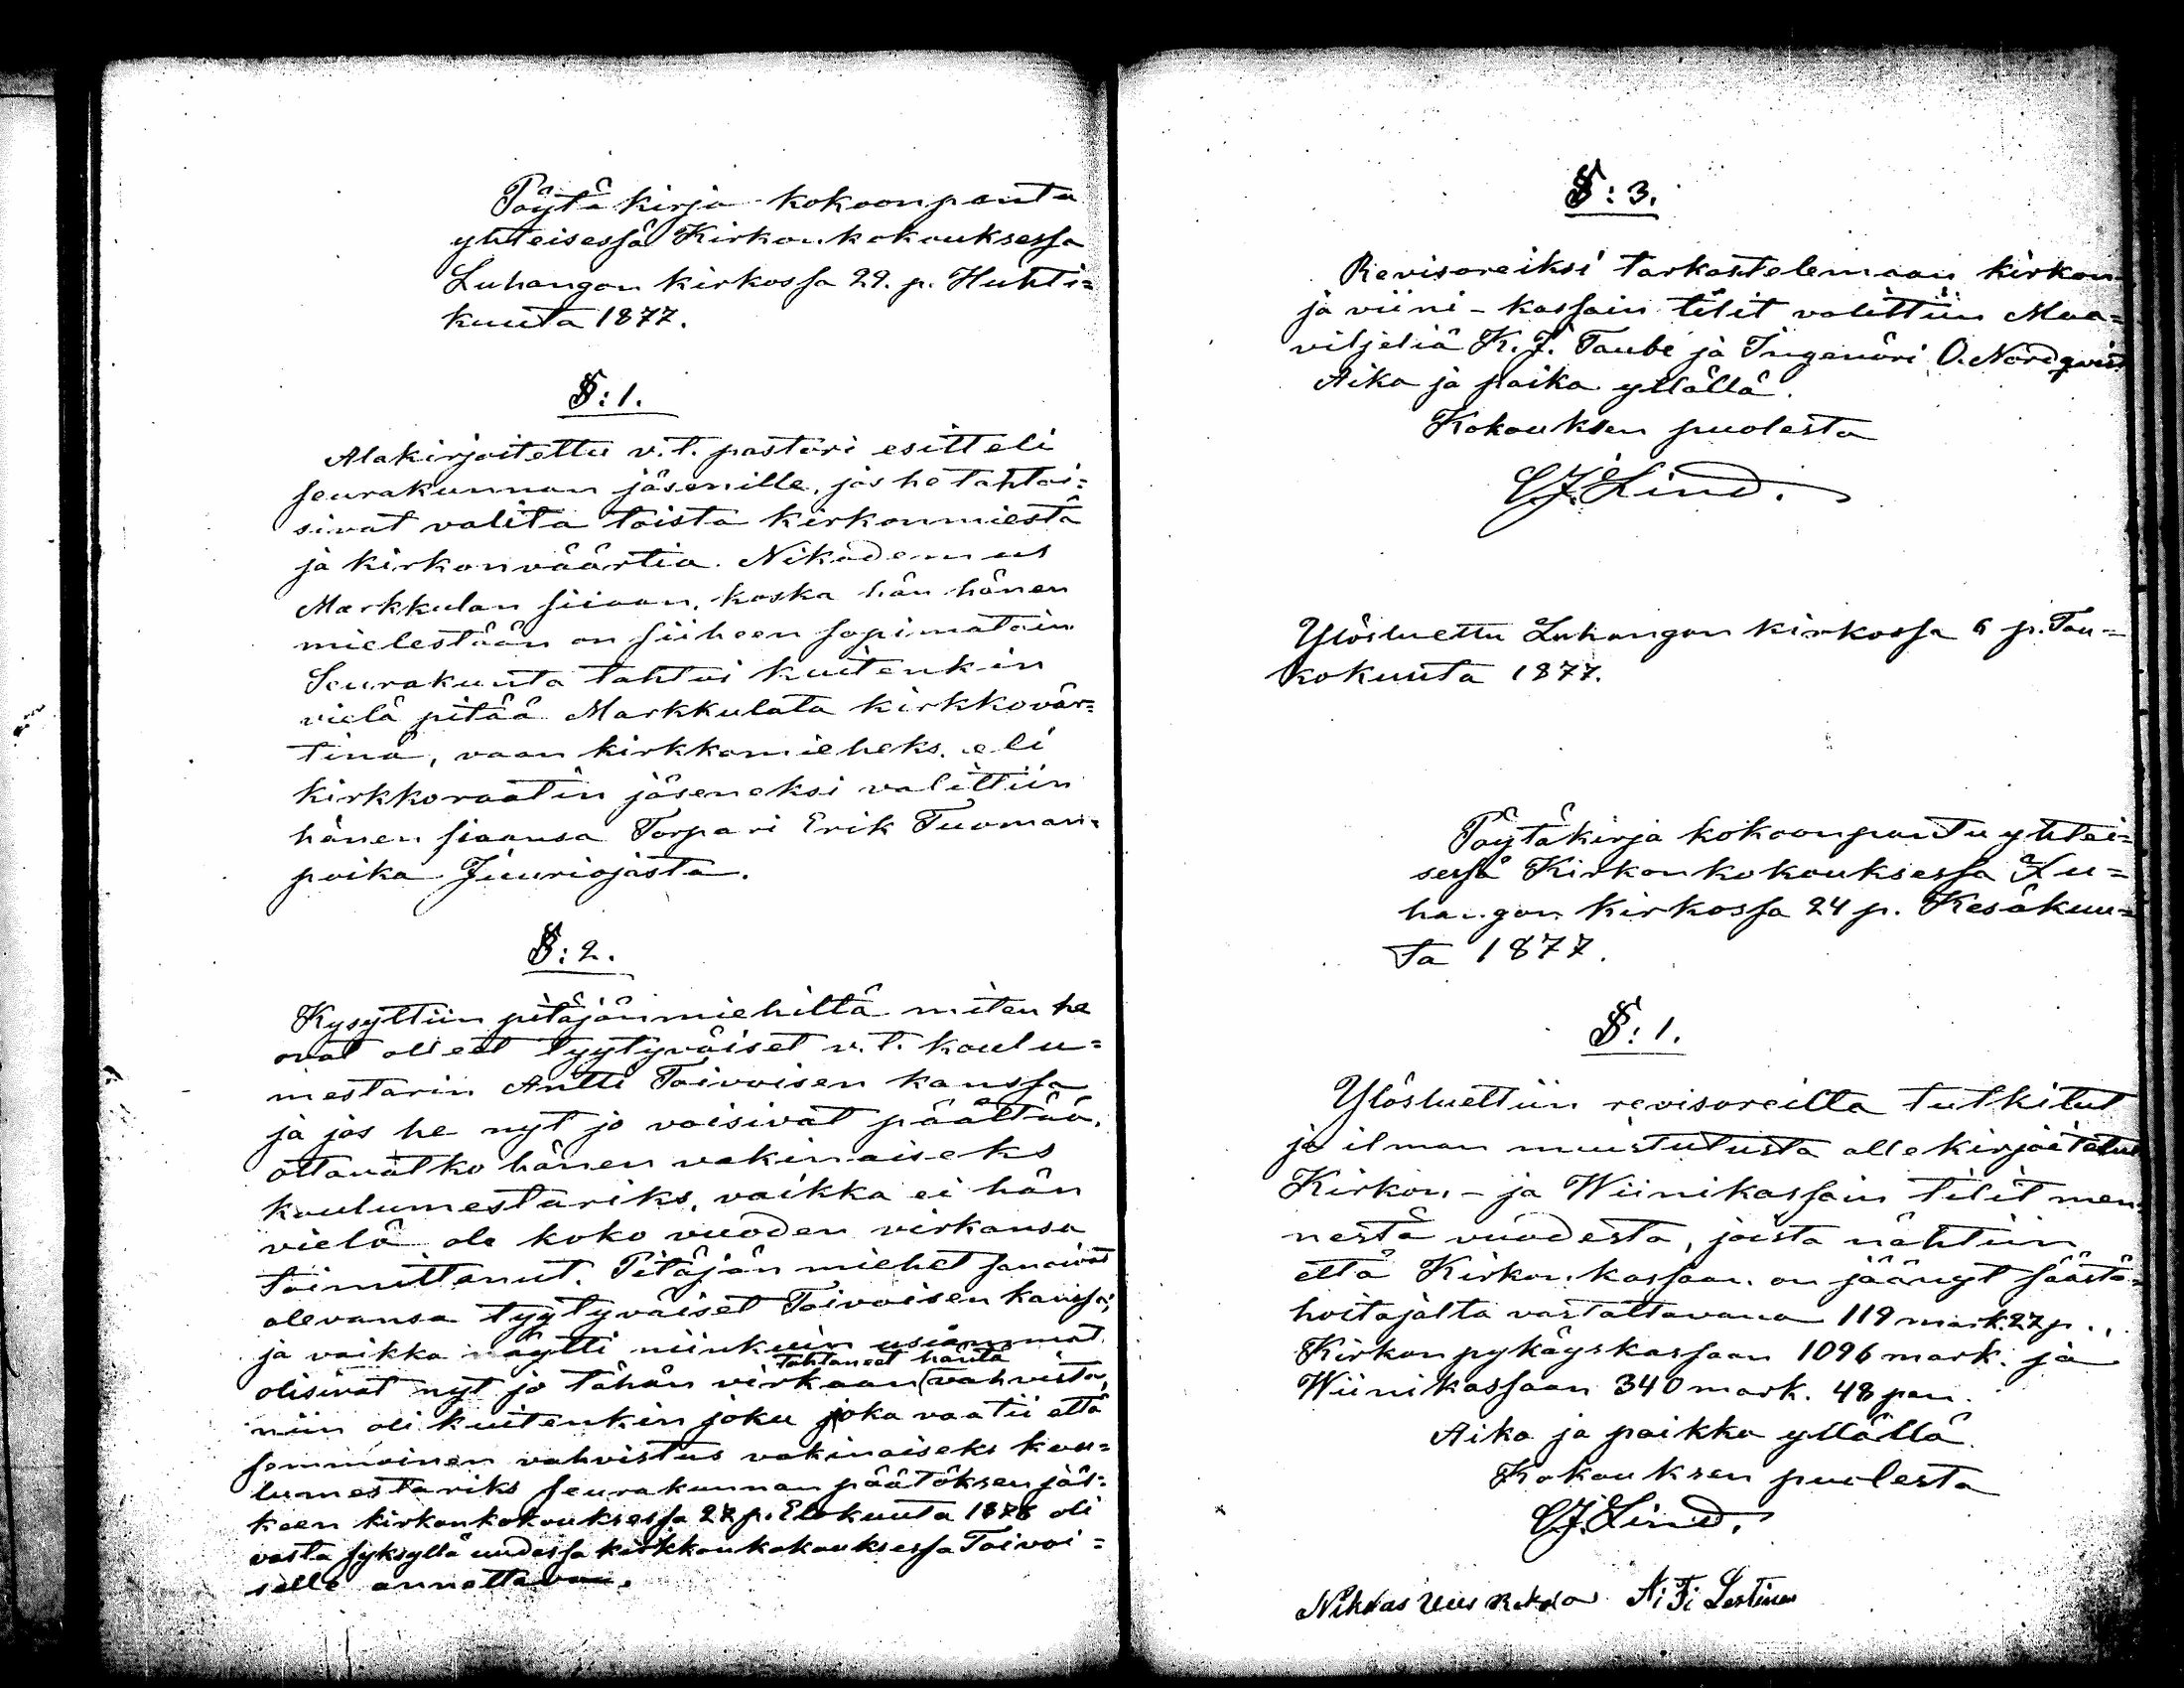 Pöytäkirja kokoonpantu
yhteisessä Kirkonkokouksessa
Luhangan kirkossa 29. p. Huhti=
kuuta 1877.
§: 1.
Alakirjoitettu v.t. pastori esitteli
seurakunnan jäsenille, jos he tahtoi=
sivat valita toista kirkonmiestä
ja kirkonväärtiä Nikodemus
Markkulan siiaan, koska hän hänen
mielestään on siiheen sopimatoin
Seurakunta tahtoi kuitenkin
vielä pitää Markkulata kirkkovär=
tinä, vaan kirkkomieheks eli
kirkkoraatin jäseneksi valittiin
hänen siaansa Torpari Erik Tuoman=
poika Juuriojasta.
§: 2.
Kysyttiin pitäjänmiehiltä miten he
ovat olleet tyytyväiset v.t. koulu=
mestarin Antti Toivoisen kanssa
ja jos he nyt jo voisivat päättää,
ottavatko hänen vakinaiseks
koulumestariks, vaikka ei hän
vielä ole koko vuoden virkansa
toimittanut. Pitäjän miehet sanoivat
olevansa tyytyväiset Toivoisen kanssa,
ja vaikka näytti niinkuin usiammat
tahtoneet häntä
olisivat nyt jo tähän virkaan vahvista,
niin oli kuitenkin joku joka vaatii että
semmoinen vahvistus vakinaiseks kou=
lumestariks seurakunnan päätöksen jäl=
keen kirkonkokouksessa 27 p. Elokuuta 1876 oli
vasta syksyllä uudessa kirkkonkokouksessa Toivoi=
selle annettava.
§: 3.
Revisoreiksi tarkastelemaan kirkon-
ja viini-kassain tilit valittiin Maa=
viljeliä K. J. Taube ja Ingenöri O. Nordqvist
Aika ja paika yllällä.
Kokouksen puolesta
C.J. Lind.
Ylösluettu Luhangan kirkossa 6 p. Tou=
kokuuta 1877.
Pöytäkirja kokoonpantu yhtei=
sessä Kirkonkokouksessa Lu=
hangan kirkossa 24 p. Kesäkuu=
ta 1877.
§: 1.
Ylösluettiin revisoreilta tutkitut
ja ilman muistutusta allekirjoitetut
Kirkon- ja Wiinikassain tilit men=
nestä vuodesta, joista nähtiin
että Kirkon kassaan on jäänyt säästö=
hoitajalta vastattavana 119 mark. 27 p.,
Kirkon pykäyskassaan 1096 mark. ja
Wiinikassaan 340 mark. 48 pen.
Aika ja paikka yllällä
Kokouksen puolesta
C.J. Lind.
Niklas Lestinen